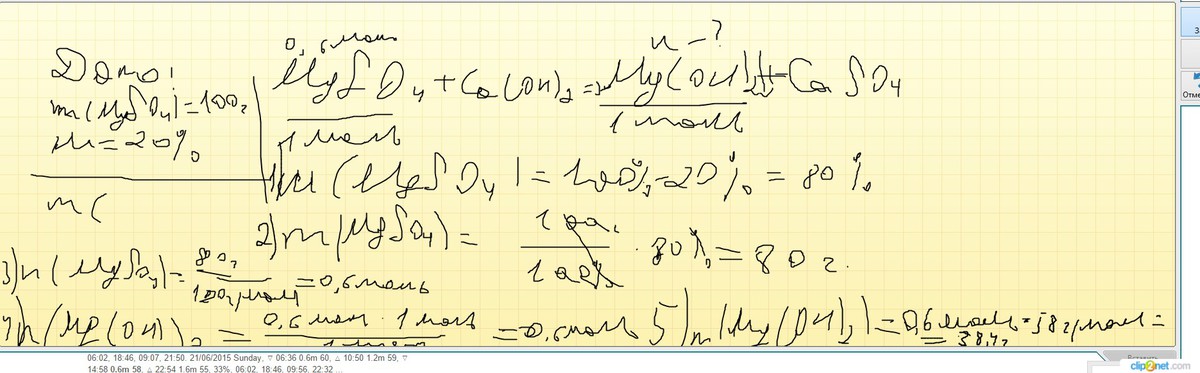 0,6 моль
n - ?
Дано:
m(MgSO₄)=100г
w=20%
m(
MgSO₄+Ca(OH)₂=Mg(OH)₂↓+CaSO₄
1 моль
1 моль
1)w(MgSO₄)=100%-20%=80%
2)m(MgSO₄)= 100г/100% · 80%=80г.
3)n(MgSO₄)= 80г/120г/моль =0,6 моль
4)n(Mg(OH)₂ = 0,6 моль · 1 моль / 1 моль =0,6 моль
5)m(Mg(OH)₂)=0,6 моль · 58г/моль =
= 38,4г
06:02, 18:46, 09:07, 21:50. 21/06/2015 Sunday, ▽ 06:36 0.6m 60, △ 10:50 1.2m 59, ▽
14:58 0.6m 58. △ 22:54 1.6m 55. 33%. 06:02. 18:46. 09:56. 22:32 ...
Вставить
clip2net.com